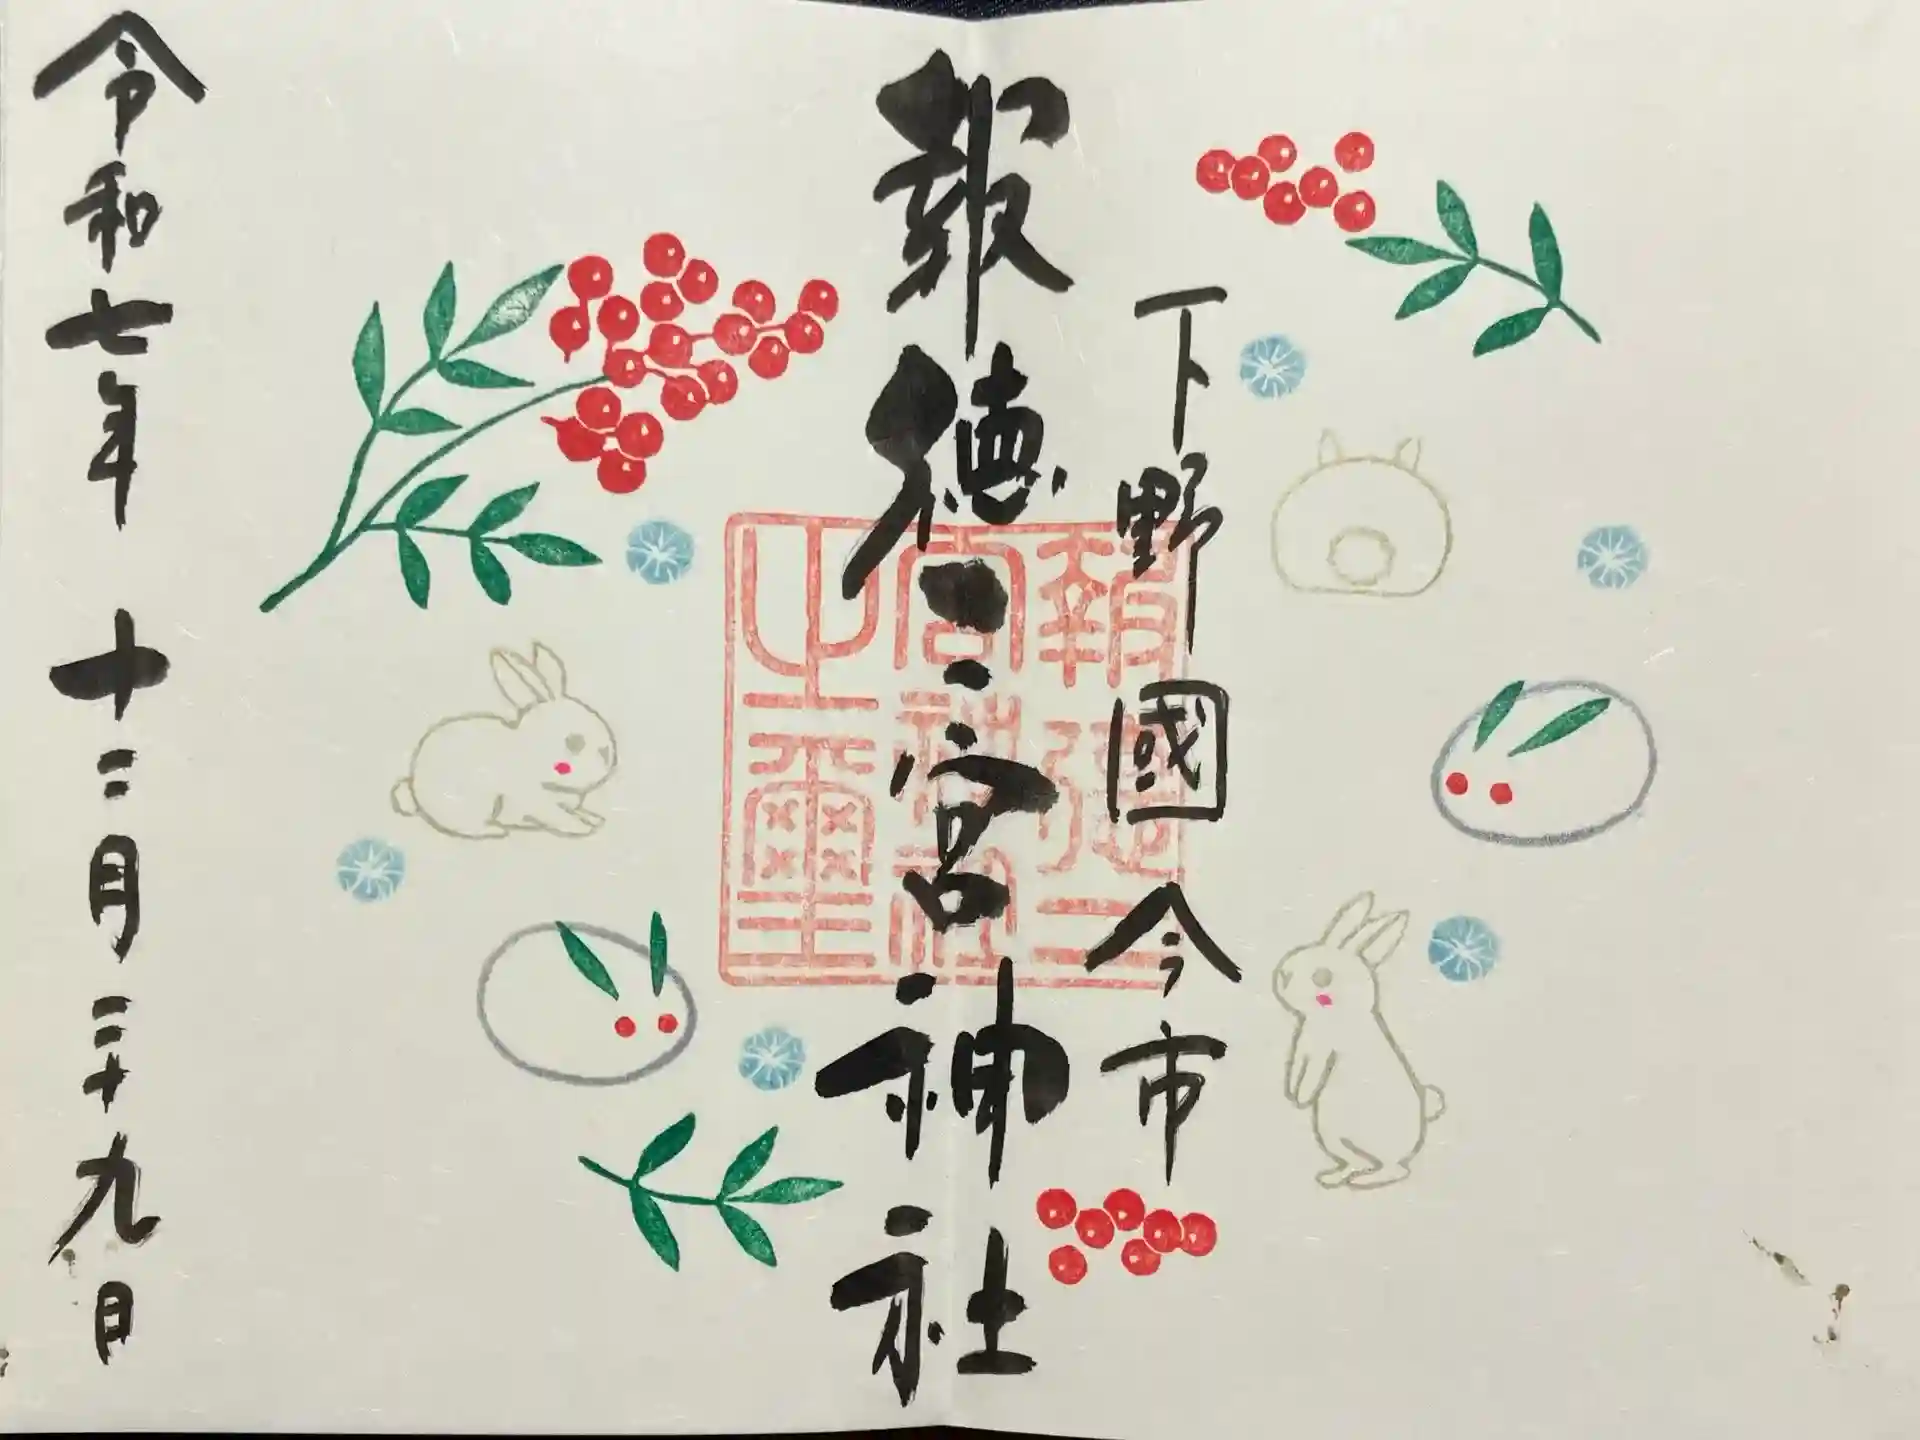 下野國今市
報徳二宮神社
報徳二
宮神社
之璽
令和七年十二月二十九日